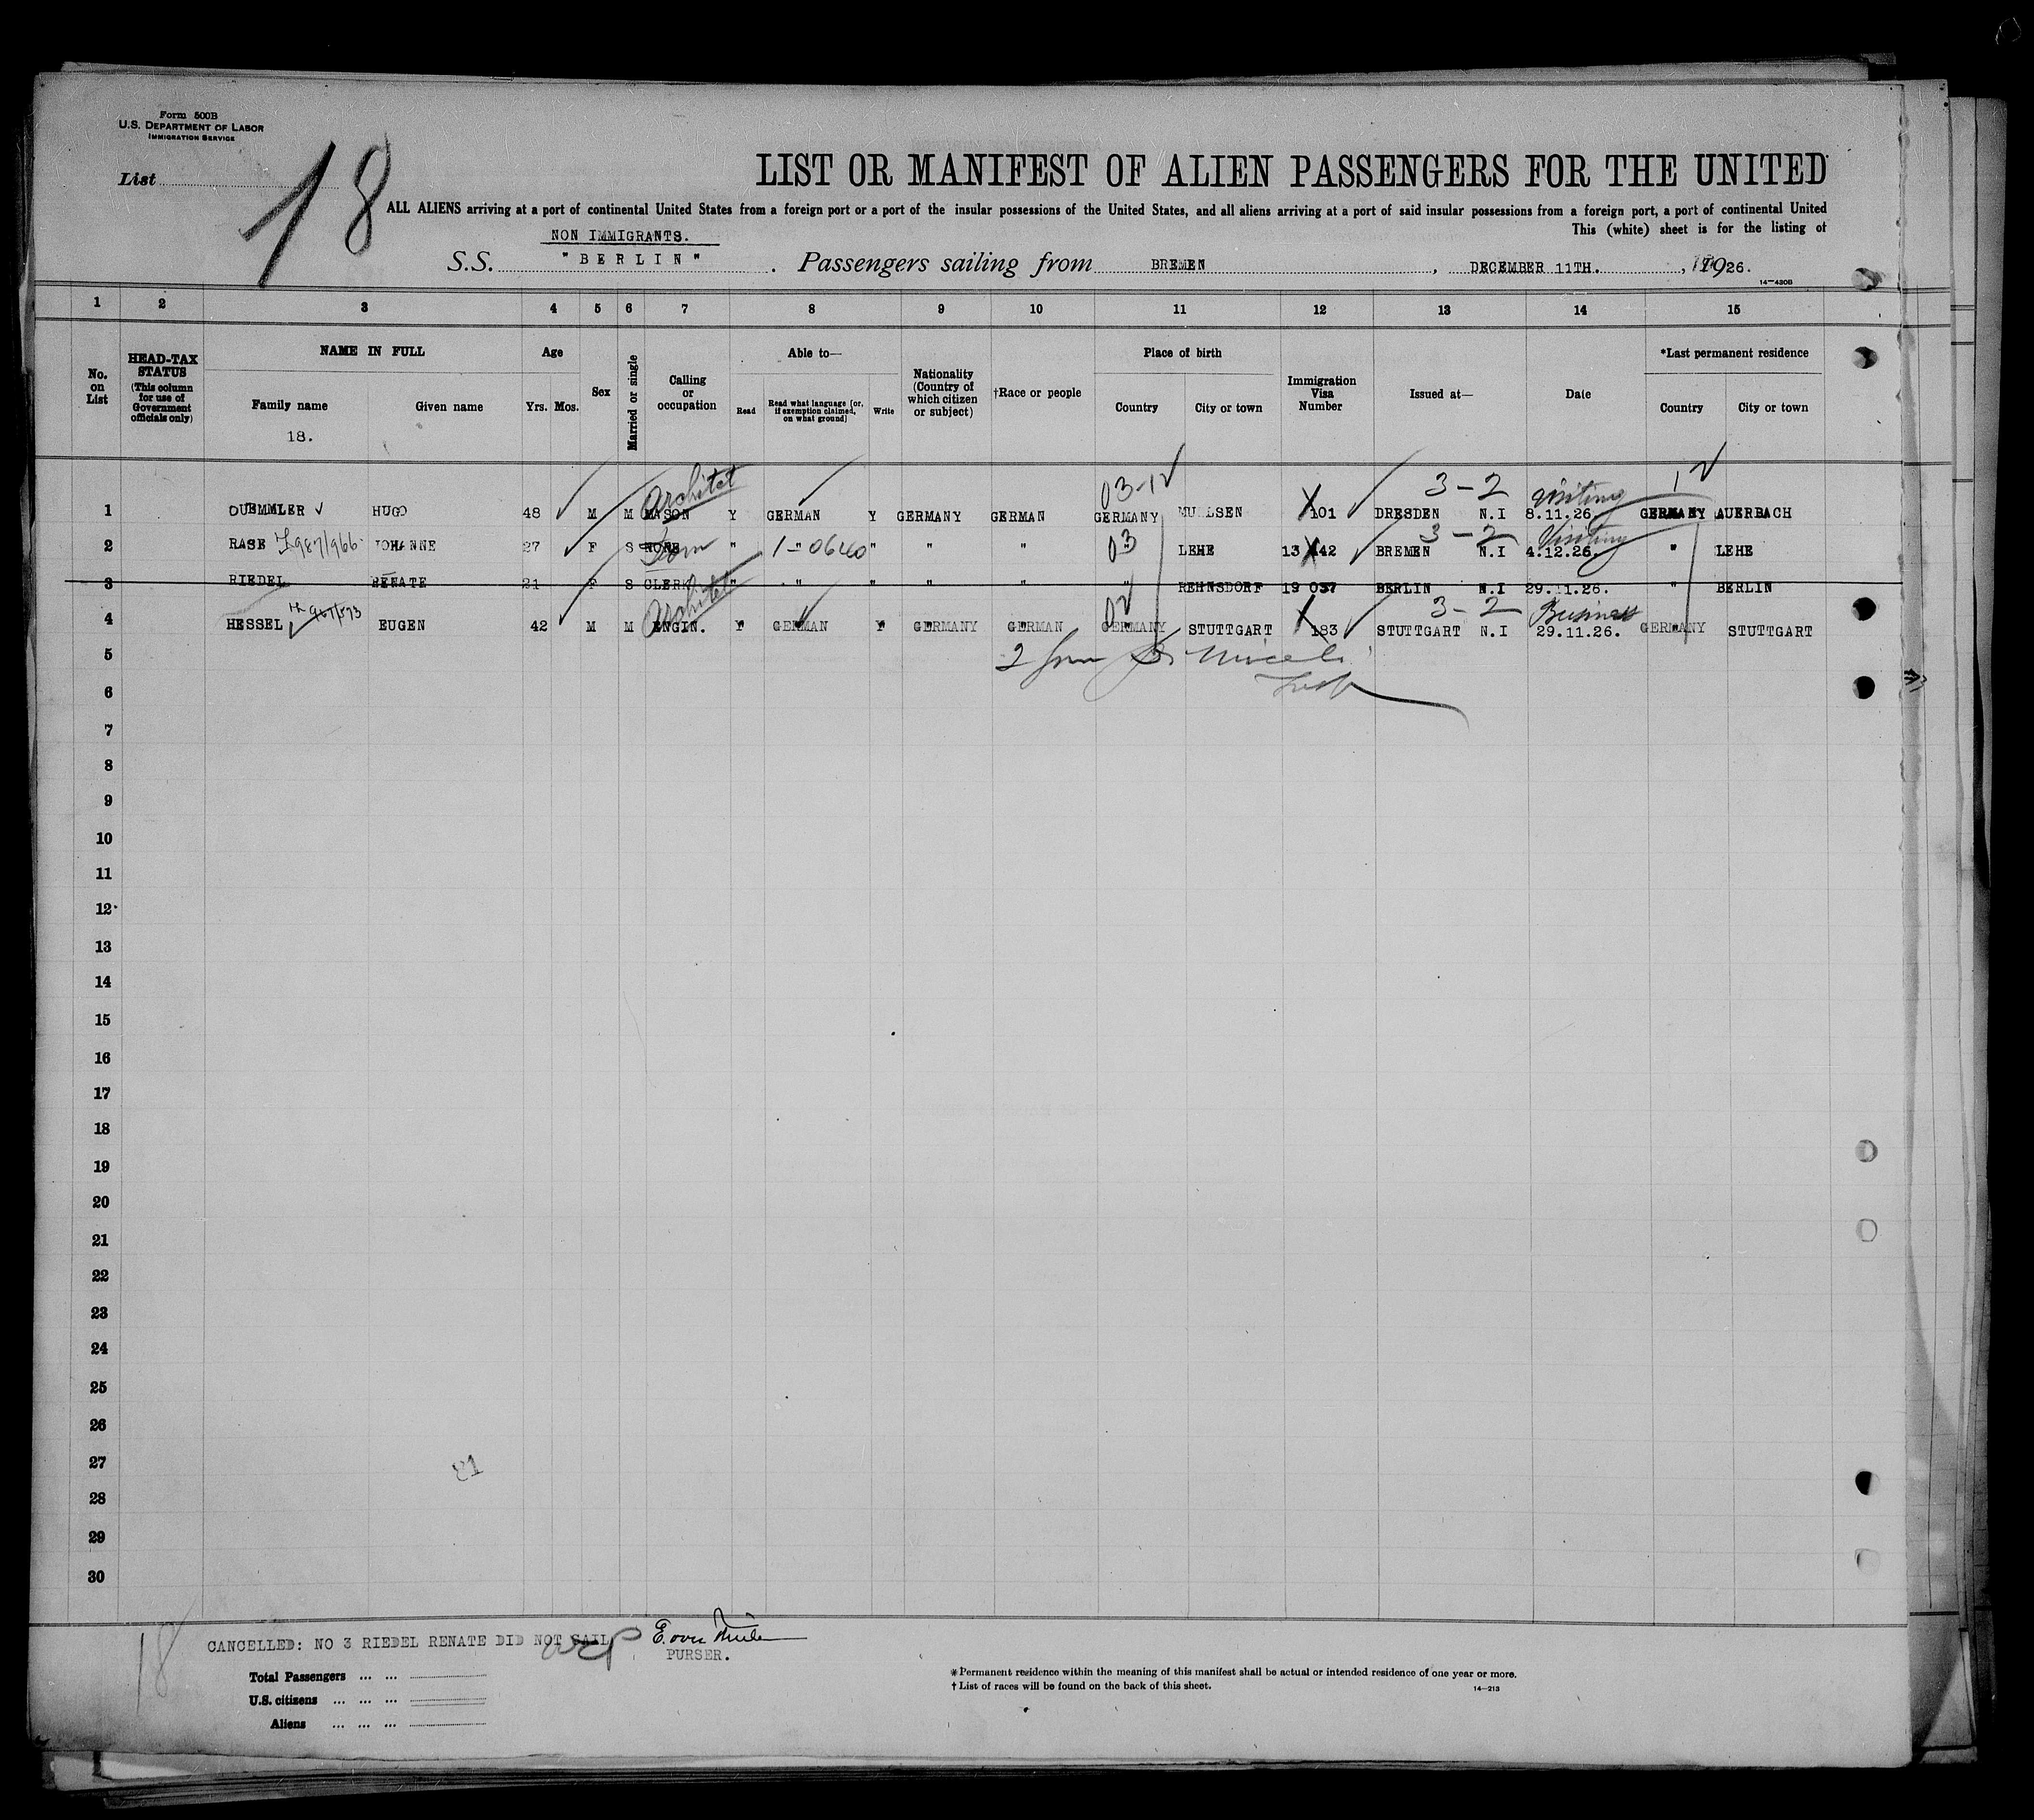 Form 500B
U.S. DEPARTMENT OF LABOR
IMMIGRATION SERVICE
List
18
LIST OR MANIFEST OF ALIEN PASSENGERS FOR THE UNITED
ALL ALIENS arriving at a port of continental United States from a foreign port or a port of the insular possessions of the United States, and all aliens arriving at a port of said insular possessions from a foreign port, a port of continental United
This (white) sheet is for the listing of
NON IMMIGRANTS.
S.S. "BERLIN" . Passengers sailing from BREMEN , DECEMBER 11TH. , 1926.
14—430B
1 2 3 4 5 6 7 8 9 10 11 12 13 14 15
No. on List
HEAD-TAX STATUS (This column for use of Government officials only)
NAME IN FULL
Family name
Given name
18.
Age
Yrs. Mos.
Sex
Married or single
Calling or occupation
Able to—
Read
Read what language (or, if exemption claimed, on what ground)
Write
Nationality (Country of which citizen or subject)
†Race or people
Place of birth
Country
City or town
Immigration Visa Number
Issued at—
Date
*Last permanent residence
Country
City or town
Architet 03-12 3-2 visiting 1
1 DUEMMLER HUGO 48 M M MASON Y GERMAN Y GERMANY GERMAN GERMANY 101 DRESDEN N.I 8.11.26. GERMANY AUERBACH
Dom 03 3-2 Visiting
2 RASE 987/966 JOHANNE 27 F S NONE " 1-"0640 " " " LEHE 13 442 BREMEN N.I 4.12.26. " LEHE
3 RIEDEL RENATE 21 F S CLERK " " " " " " REHNSDORF 19 037 BERLIN N.I 29.11.26. " BERLIN
Architet 02 3-2 Business
4 HESSEL EUGEN 42 M M ENGIN. Y GERMAN Y GERMANY GERMAN GERMANY STUTTGART 183 STUTTGART N.I 29.11.26. GERMANY STUTTGART
5
6
7
8
9
10
11
12
13
14
15
16
17
18
19
20
21
22
23
24
25
26
27
28
29
30
18
CANCELLED: NO 3 RIEDEL RENATE DID NOT SAIL
PURSER.
Total Passengers ... ...
U.S. citizens ... ... ...
Aliens ... ... ...
* Permanent residence within the meaning of this manifest shall be actual or intended residence of one year or more.
† List of races will be found on the back of this sheet.
14—213